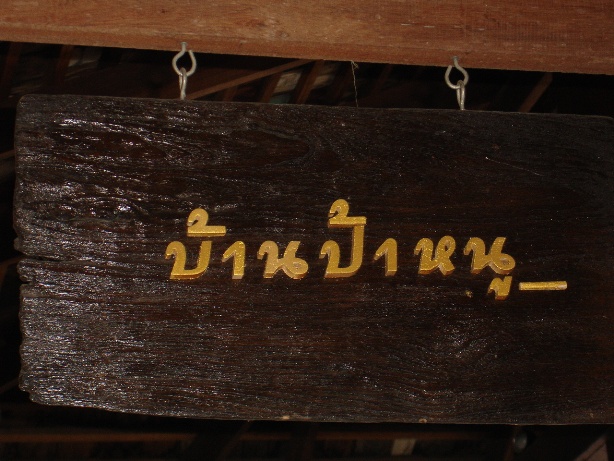 บ้านป้าหนู_